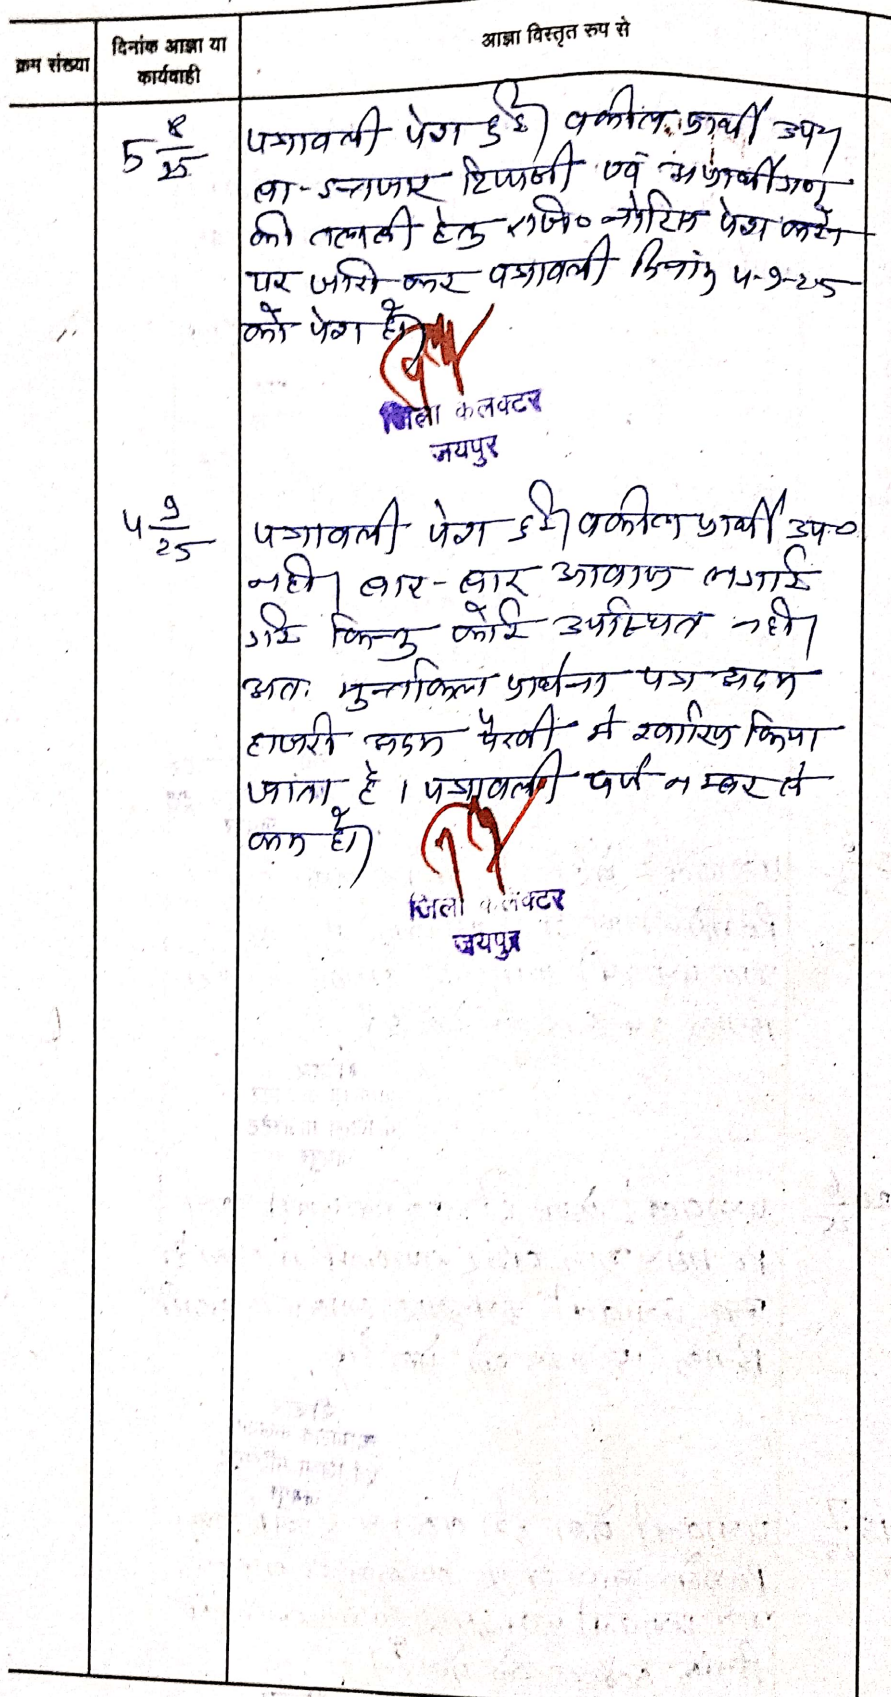 क्रम संख्या
दिनांक आज्ञा या
कार्यवाही
आज्ञा विस्तृत रुप से
5 8/25
पत्रावली पेश हुई। वकील प्रार्थी उप०
बा-इन्तजार टिप्पणी एवं अप्रार्थीगण
की तलबी हेतु रजि० नोटिस पेश करने
पर जारी कर पत्रावली दिनांक 4-9-25
को पेश हो।
जिला कलक्टर
जयपुर
4 9/25
पत्रावली पेश हुई। वकील प्रार्थी उप०
नही। बार-बार आवाज लगाई
गई किन्तु कोई उपस्थित नही।
अतः मुन्तकिल प्रार्थना पत्र अदम
हाजरी अदम पैरवी मे खारिज किया
जाता है। पत्रावली दर्ज नम्बर से
कम हो।
जिला कलक्टर
जयपुर